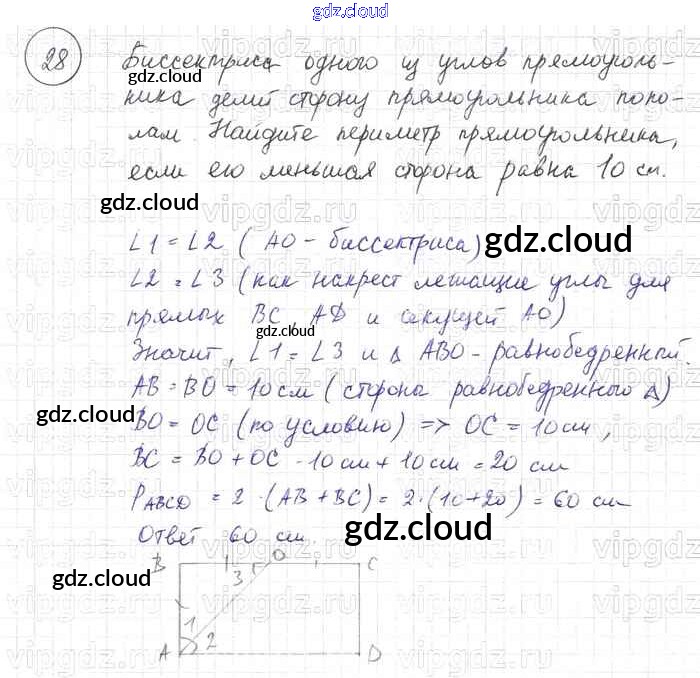 gdz.cloud
28 Биссектриса одного из углов прямоуголь-
gdz.cloud
ника делит сторону прямоугольника попо-
лам. Найдите периметр прямоугольника,
если его меньшая сторона равна 10 см.
gdz.cloud
∠1 = ∠2 (AO - биссектриса)
gdz.cloud
∠2 = ∠3 (как накрест лежащие углы для
прямых BC, AD и секущей AO)
gdz.cloud
Значит, ∠1 = ∠3 и △ ABO - равнобедренный.
AB = BO = 10 см (стороны равнобедренного △)
gdz.cloud
BO = OC (по условию) => OC = 10 см,
BC = BO + OC = 10 см + 10 см = 20 см
P ABCD = 2 · (AB + BC) = 2 · (10 + 20) = 60 см
Ответ 60 см.
gdz.cloud
B O C
3
gdz.cloud
1
2
A D
gdz.cloud